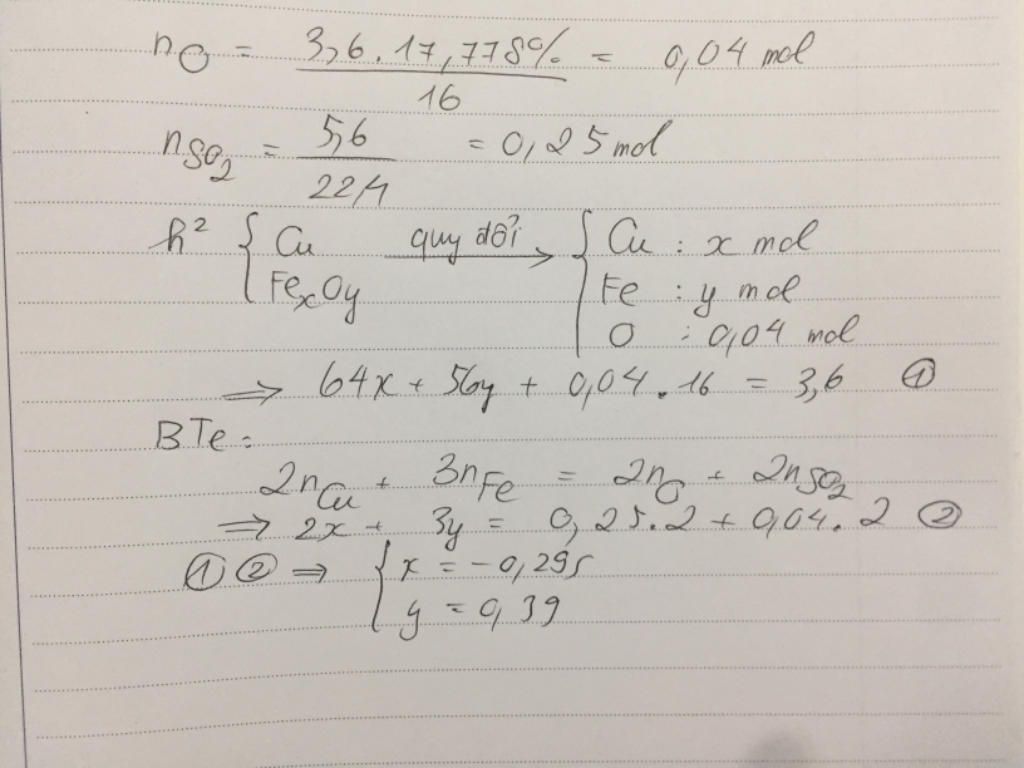 nO = 3,6.17,778% / 16 = 0,04 mol
nSO2 = 5,6 / 22,4 = 0,25 mol
h² { Cu quy đổi → { Cu : x mol
FexOy Fe : y mol
O : 0,04 mol
⇒ 64x + 56y + 0,04.16 = 3,6 ①
BTe:
2nCu + 3nFe = 2nO + 2nSO2
⇒ 2x + 3y = 0,25.2 + 0,04.2 ②
① ② ⇒ { x = -0,295
y = 0,39